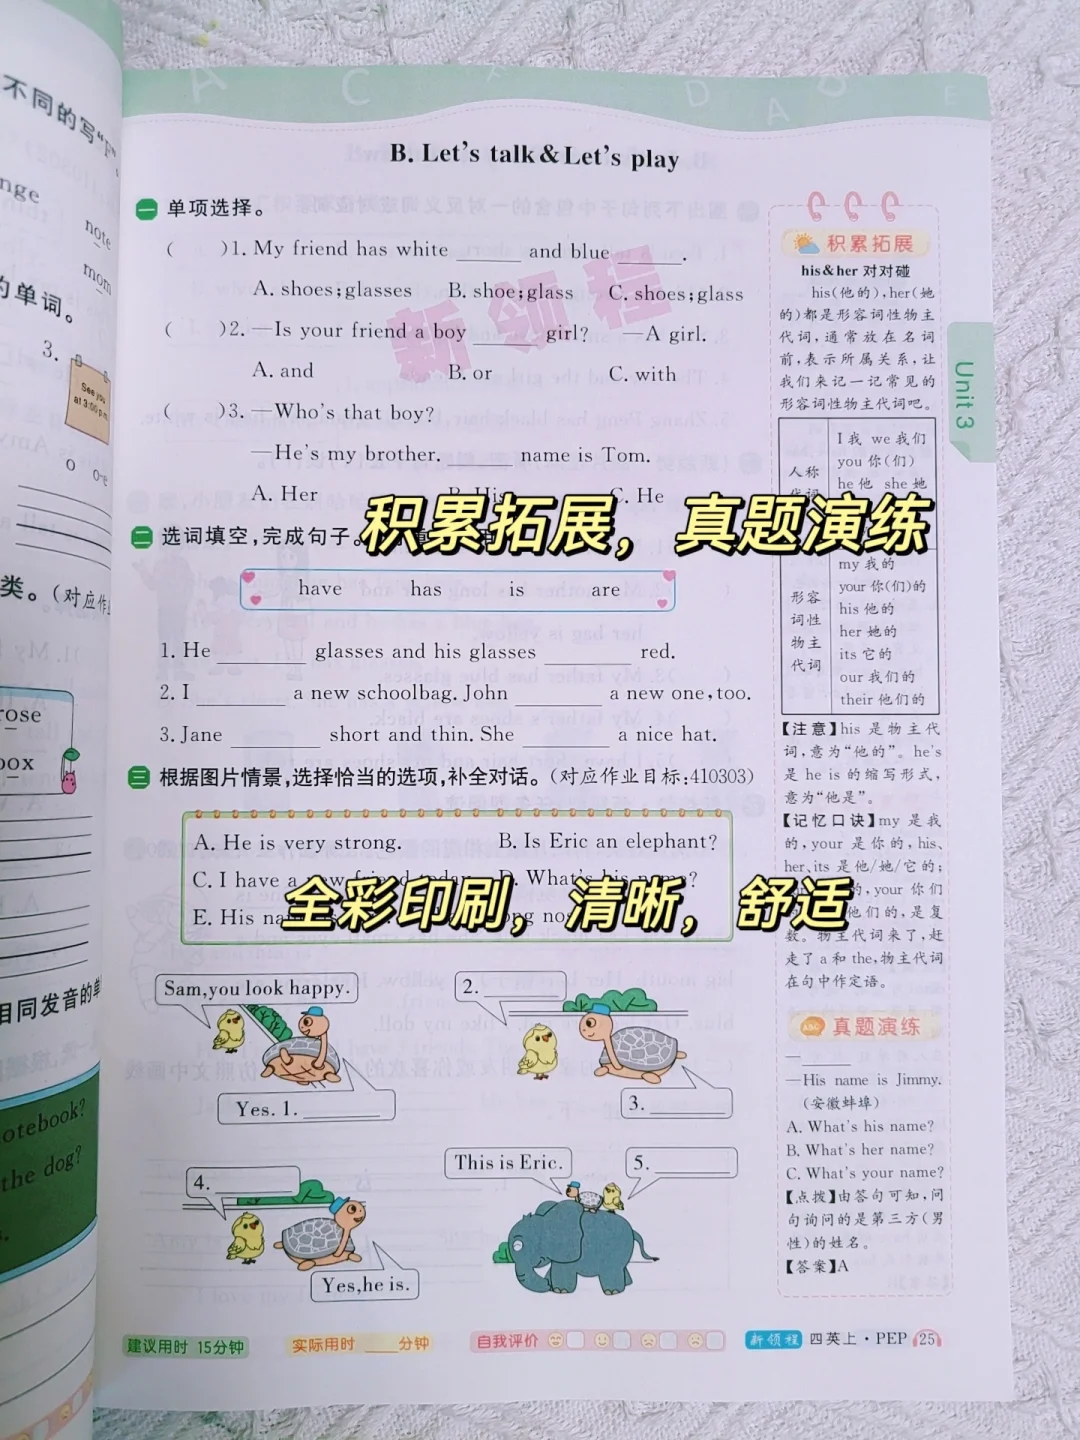 不同的写"F"
nge
note
mom
的单词。
3.
See you
at 3:00 p.m.
o o-e
类。(对应作业
rose
box
相同发音的单
otebook?
the dog?
B. Let's talk&Let's play
一 单项选择。
( )1. My friend has white ______ and blue ______.
A. shoes;glasses B. shoe;glass C. shoes;glass
( )2. —Is your friend a boy ______ girl? —A girl.
A. and B. or C. with
( )3. —Who's that boy?
—He's my brother. ______ name is Tom.
A. Her B. His C. He
积累拓展，真题演练
二 选词填空,完成句子。
have has is are
1. He ______ glasses and his glasses ______ red.
2. I ______ a new schoolbag. John ______ a new one,too.
3. Jane ______ short and thin. She ______ a nice hat.
三 根据图片情景,选择恰当的选项,补全对话。(对应作业目标:410303)
A. He is very strong. B. Is Eric an elephant?
C. I have a new friend today. D. What's his name?
全彩印刷，清晰，舒适
E. His
Sam,you look happy.
2. ______
Yes. 1. ______
3. ______
4. ______
This is Eric.
5. ______
Yes,he is.
新领程
积累拓展
his&her 对对碰
his(他的),her(她
的)都是形容词性物主
代词,通常放在名词
前,表示所属关系,让
我们来记一记常见的
形容词性物主代词吧。
人称
代词
I 我 we 我们
you 你(们)
he 他 she 她
形容
词性
物主
代词
my 我的
your 你(们)的
his 他的
her 她的
its 它的
our 我们的
their 他们的
【注意】his 是物主代
词,意为"他的"。he's
是 he is 的缩写形式,
意为"他是"。
【记忆口诀】my 是我
的,your 是你的,his、
her、its 是他/她/它的;
的,your 你们
他们的,是复
数。物主代词来了,赶
走了 a 和 the,物主代词
在句中作定语。
真题演练
—______
—His name is Jimmy.
(安徽蚌埠)
A. What's his name?
B. What's her name?
C. What's your name?
【点拨】由答句可知,问
句询问的是第三方(男
性)的姓名。
【答案】A
Unit 3
建议用时 15分钟 实际用时 ____分钟 自我评价
新领程 四英上·PEP 25